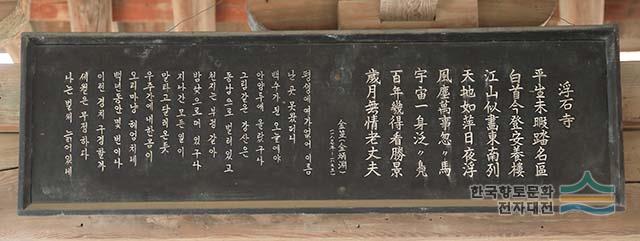 浮石寺
平生未暇踏名區
白首今登安養樓
江山似畵東南列
天地如萍日夜浮
風塵萬事忽〃馬
宇宙一身泛〃鳧
百年幾得看勝景
歲月無情老丈夫
金笠(金炳淵)
평생에 여가 없어 이름
난 곳 못 왔더니
백수가 된 오늘에야
안양루에 올랐구나
그림같은 강산은
동남으로 벌려있고
천지는 부평같아
밤낮으로 떠 있구나
지나간 모든 일이
말타고 달려온듯
우주간에 내 한몸이
오리마냥 헤엄치네
백년동안 몇번이나
이런 경치 구경할까
세월은 무정하다
나는 벌써 늙어있네
한국향토문화
전자대전